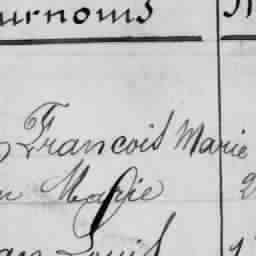 urnoms
François Marie
n Marie
an Louis